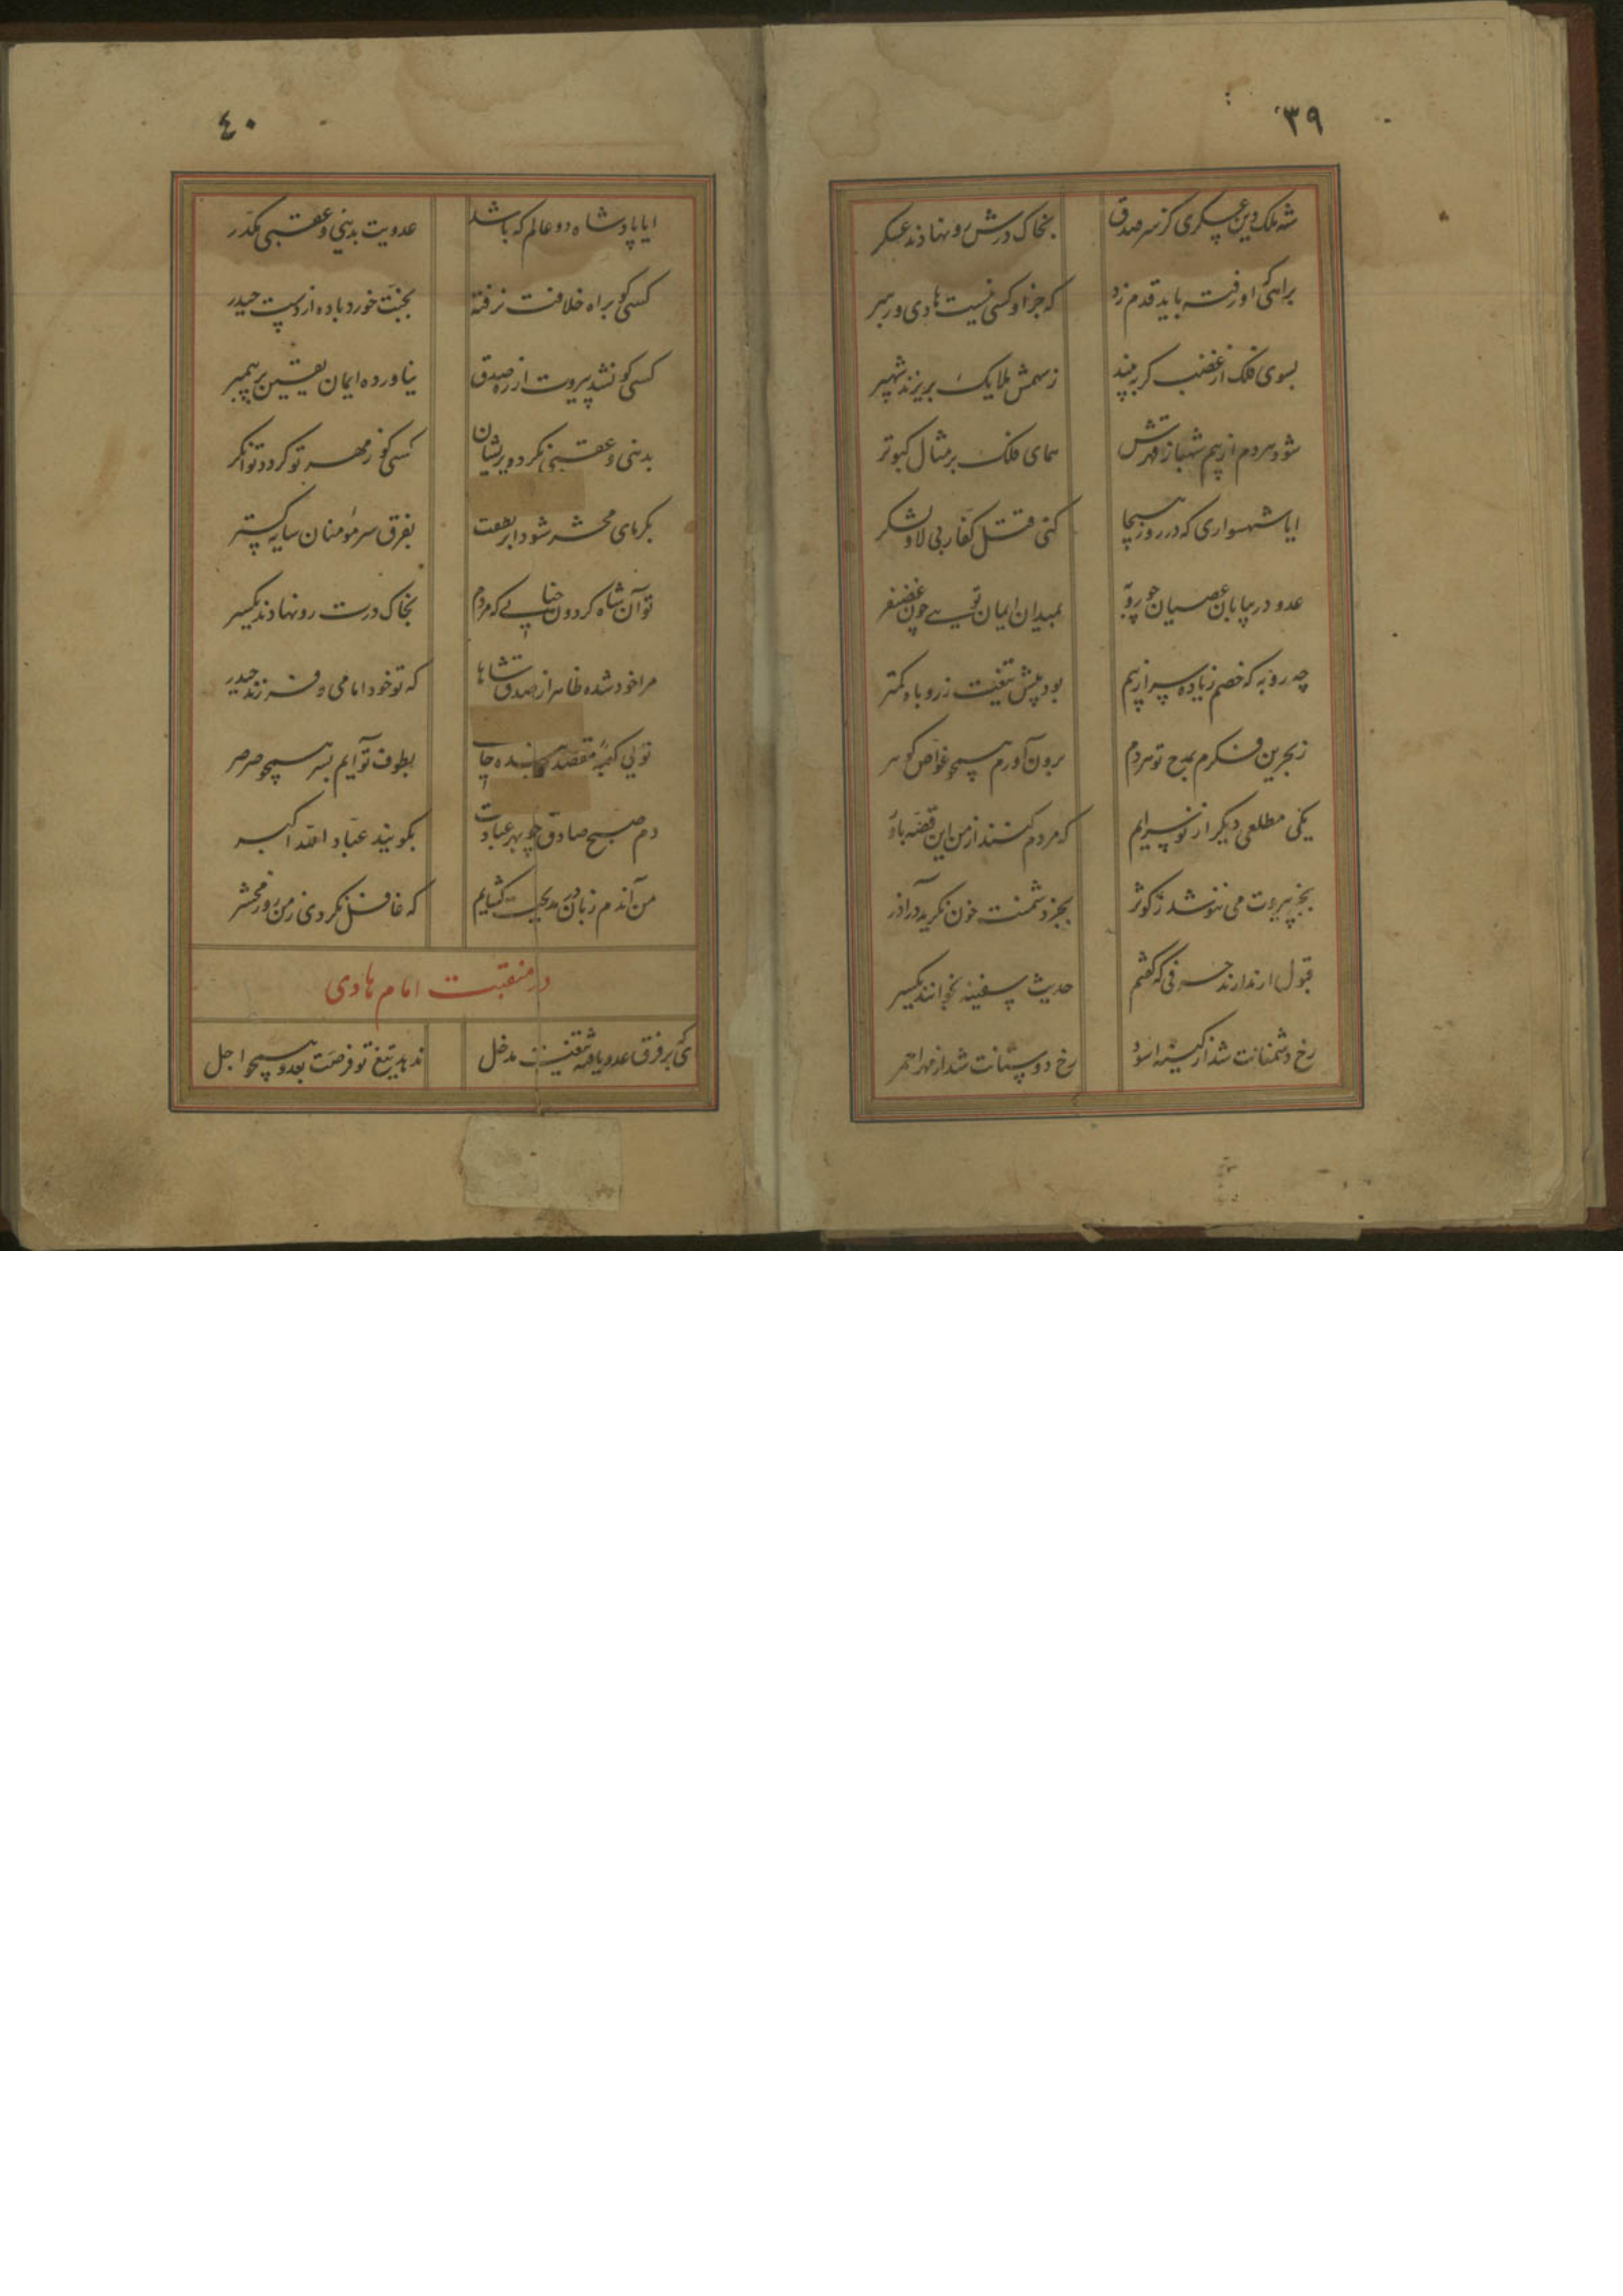 ۳۹
شه ملک دین عسکری کز سر صدق
بخاک درش رو نهادند عسکر
براهی که او رفت باید قدم زد
که جز او کسی نیست هادی و رهبر
بسوی فلک از غضب گر به بیند
ز سهمش ملایک بریزند شهپر
شود هر دم از بیم شهباز قهرش
همای فلک بر مثال کبوتر
ایا شهسواری که در روز هیجا
کنی قتل کفار بی لاو لشکر
عدو در بیابان عصیان چو روبه
بمیدان ایمان تویی چون غضنفر
چه روبه که خصم زیاده سر از بیم
بود پیش تیغت ز روباه کمتر
ز بحرین فکرم بمدح تو هردم
برون آورم همچو غواص گوهر
یکی مطلعی دیگر از نو سرایم
که مردم کنند از من این قصه باور
بجز پیروت می ننوشد ز کوثر
بجز دشمنت خون نگرید در آذر
قبول ار ندارند حرفی که گفتم
حدیث سفینه بخوانند یکسر
رخ دشمنانت شد از کینه اسود
رخ دوستانت شد از مهر احمر
۴۰
ایا پادشاه دو عالم که باشد
عدویت بدنیی و عقبی مکدر
کسی کو براه خلافت نرفته
بجنت خورد باده از دست حیدر
کسی کو نشد پیروت از ره صدق
نیاورده ایمان یقین بر پیمبر
بدنیی و عقبی نگردد پریشان
کسی کو ز مهر تو گردد توانگر
بگرمای محشر شود ابر لطفت
بفرق سر مؤمنان سایه گستر
تو آن شاه گردون جنابی که مردم
بخاک درت رو نهادند یکسر
مرا خود شده ظاهر از صدق شاها
که تو خود امامی و فرزند حیدر
تویی کعبه مقصد
بطوف تو آیم بسر همچو صرصر
دم صبح صادق چو بهر عبادت
بگویند عباد الله اکبر
من آندم زبان در مدیحت گشایم
که غافل نگردی ز من روز محشر
در منقبت امام هادی
کی بر فرق عدو یافته تیغت مدخل
ندهد تیغ تو فرصت بعدو همچو اجل